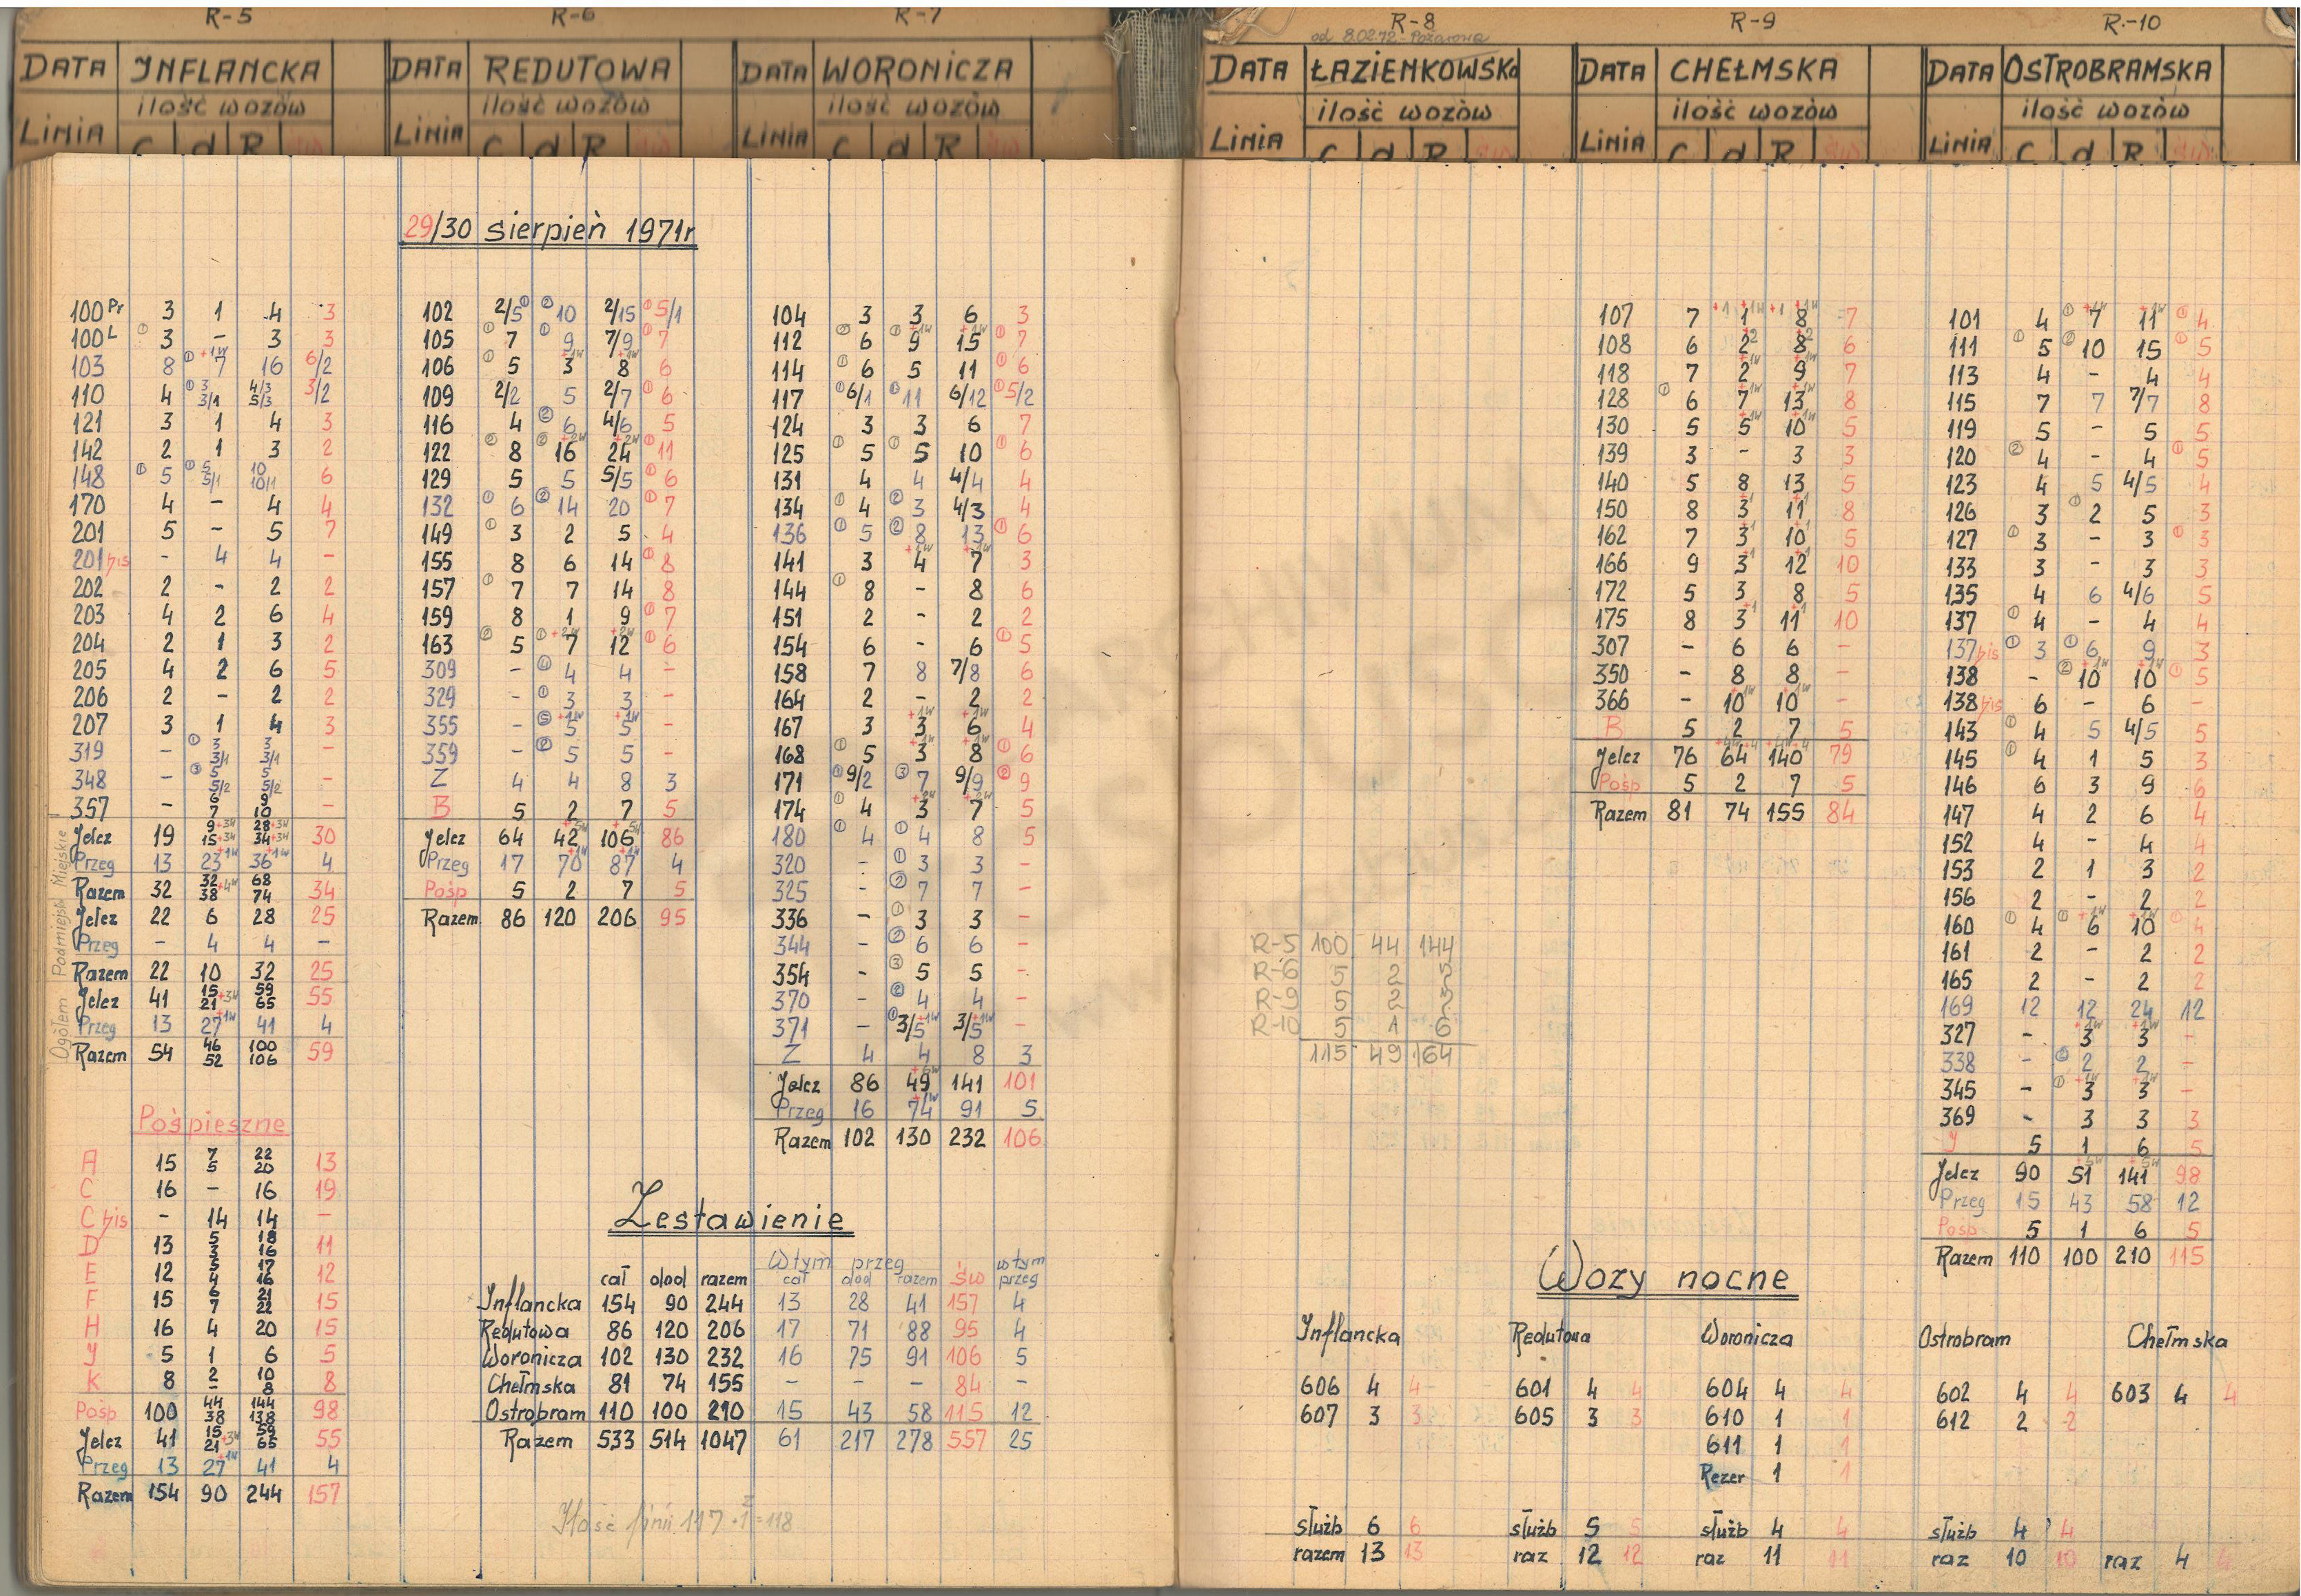 R-5 R-6 R-7 R-8 R-9 R-10
od 8.02.72 - Pożarowa
DATA INFLANCKA
ilość wozów
LINIA C d R
DATA REDUTOWA
ilość wozów
LINIA C d R
DATA WORONICZA
ilość wozów
LINIA C d R
DATA ŁAZIENKOWSKA
ilość wozów
LINIA C d R
DATA CHEŁMSKA
ilość wozów
LINIA C d R
DATA OSTROBRAMSKA
ilość wozów
LINIA C d R
29/30 sierpień 1971r
100 Pr 3 1 4 3
100 L ① 3 - 3 3
103 8 ① 7 +1w 16 6/2
110 4 ① 3 3/1 4/3 5/3 3/2
121 3 1 4 3
142 2 1 3 2
148 ① 5 ① 5 5/1 10 10/1 6
170 4 - 4 4
201 5 - 5 7
201 bis - 4 4 -
202 2 - 2 2
203 4 2 6 4
204 2 1 3 2
205 4 2 6 5
206 2 - 2 2
207 3 1 4 3
319 - ① 3 3/1 3 3/1 -
348 - ③ 5 5/2 5 5/2 -
357 - 6 7 9 10 -
Jelcz 19 9+3w 15+3w 28+3w 34+3w 30
Przeg 13 23+1w 36+1w 4
Razem 32 32 38 +4w 68 74 34
Jelcz 22 6 28 25
Przeg - 4 4 -
Razem 22 10 32 25
Jelcz 41 15 21 +3w 59 65 55
Przeg 13 27+1w 41 4
Razem 54 46 52 100 106 59
Ogółem Podmiejsk Miejskie
Pośpieszne
A 15 7 5 22 20 13
C 16 - 16 19
C bis - 14 14 -
D 13 5 3 18 16 11
E 12 5 4 17 16 12
F 15 6 7 21 22 15
H 16 4 20 15
J 5 1 6 5
K 8 2 - 10 8 8
Pośp 100 44 38 144 138 98
Jelcz 41 15 21 +3w 59 65 55
Przeg 13 27+1w 41 4
Razem 154 90 244 157
102 2/5 ① ② 10 2/15 ① 5/1
105 ① 7 ① 9 7/9 ① 7
106 ① 5 3 +1w 8 +1w 6
109 2/2 5 2/7 ① 6
116 4 ② 6 4/6 5
122 ② 8 ② 16 +2w 24 +2w ① 11
129 5 5 5/5 ① 6
132 ① 6 ② 14 20 ① 7
149 ① 3 2 5 4
155 8 6 14 ① 8
157 ① 7 7 14 8
159 8 1 9 ① 7
163 ② 5 ① 7 +2w 12 +2w ① 6
309 - ④ 4 4 -
329 - ① 3 3 -
355 - ⑤ 5 +1w 5 +1w -
359 - ② 5 5 -
Z 4 4 8 3
B 5 2 7 5
Jelcz 64 42 +5w 106 +5w 86
Przeg 17 70 +1w 87 +1w 4
Pośp 5 2 7 5
Razem 86 120 206 95
104 3 3 6 3
112 ② 6 ① 9 +1w 15 +1w ① 7
114 ① 6 5 11 ① 6
117 ① 6/1 ① 11 6/12 ① 5/2
124 3 3 6 7
125 ① 5 ① 5 10 ① 6
131 4 4 4/4 4
134 ① 4 ② 3 4/3 4
136 ① 5 ② 8 13 ① 6
141 3 4 +1w 7 +1w 3
144 ① 8 - 8 6
151 2 - 2 2
154 6 - 6 ① 5
158 7 8 7/8 6
164 2 - 2 2
167 3 3 +1w 6 +1w 4
168 ① 5 3 +1w 8 +1w ① 6
171 ① 9/2 ③ 7 9/9 ② 9
174 ① 4 3 +2w 7 +2w 5
180 ① 4 ① 4 8 5
320 - ① 3 3 -
325 - ② 7 7 -
336 - ① 3 3 -
344 - ② 6 6 -
354 - ③ 5 5 -
370 - ② 4 4 -
371 - ① 3/5 +1w 3/5 +1w -
Z 4 4 8 3
Jelcz 86 49 +6w 141 101
Przeg 16 74 +1w 91 5
Razem 102 130 232 106
Zestawienie
W tym przeg w tym
cał dod razem cał dod razem św przeg
Inflancka 154 90 244 13 28 41 157 4
Redutowa 86 120 206 17 71 88 95 4
Woronicza 102 130 232 16 75 91 106 5
Chełmska 81 74 155 - - - 84 -
Ostrobram 110 100 210 15 43 58 115 12
Razem 533 514 1047 61 217 278 557 25
Ilość linii 117 + 1 Z = 118
R-5 100 44 144
R-6 5 2
R-9 5 2
R-10 5 1 6
115 49 164
107 7 1 +1 +1w 8 +1 +1w 7
108 6 2 +2 8 +2 6
118 7 2 +1w 9 +1w 7
128 ① 6 7 +1w 13 +1w 8
130 5 5 +1w 10 +1w 5
139 3 - 3 3
140 5 8 13 5
150 8 3 +1 11 +1 8
162 7 3 +1 10 +1 5
166 9 3 +1 12 +1 10
172 5 3 8 5
175 8 3 +1 11 +1 10
307 - 6 6 -
350 - 8 8 -
366 - 10 +1w 10 +1w -
B 5 2 7 5
Jelcz 76 64 +4w+4 140 +4w+4 79
Pośp 5 2 7 5
Razem 81 74 155 84
101 4 ① 7 +4w 11 +1w ① 4
111 ① 5 ② 10 15 ① 5
113 4 - 4 4
115 7 7 7/7 8
119 5 - 5 5
120 ② 4 - 4 ① 5
123 4 5 4/5 4
126 3 ① 2 5 3
127 ① 3 - 3 ① 3
133 3 - 3 3
135 4 6 4/6 5
137 ① 4 - 4 4
137 bis ① 3 ① 6 9 3
138 - ② 10 +1w 10 +1w ① 5
138 bis 6 - 6 -
143 ① 4 5 4/5 5
145 ① 4 1 5 3
146 6 3 9 6
147 4 2 6 4
152 4 - 4 4
153 2 1 3 2
156 2 - 2 2
160 ① 4 ① 6 +1w 10 +1w ① 4
161 2 - 2 2
165 2 - 2 2
169 12 12 24 12
327 - 3 +1w 3 +1w -
338 - 2 2 -
345 - ① 3 +1w 3 +1w -
369 - 3 3 3
J 5 1 6 5
Jelcz 90 51 +5w 141 +5w 98
Przeg 15 43 58 12
Pośp 5 1 6 5
Razem 110 100 210 115
Wozy nocne
Inflancka Redutowa Woronicza Ostrobram Chełmska
606 4 4 601 4 4 604 4 4 602 4 4 603 4 4
607 3 3 605 3 3 610 1 1 612 2 2
611 1 1
Rezer 1 1
służb 6 6 służb 5 5 służb 4 4 służb 4 4
razem 13 13 raz 12 12 raz 11 11 raz 10 10 raz 4 4